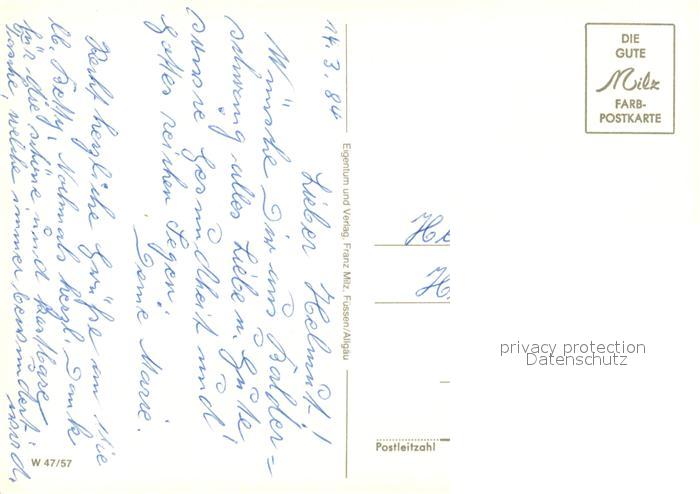 14.3.84
Lieber Helmut!
Wünsche Dir am Balder=
schwang alles Liebe u. Gute
sowie Gesundheit und
Gottes reichen Segen!
Deine Marie.
Recht herzliche Grüße an die
lb. Betty. Nochmals herzl. Dank
für die schöne und kostbare
Tasche, welche immer bewundert
wird.
W 47/57
Eigentum und Verlag, Franz Milz, Füssen/Allgäu
DIE
GUTE
Milz
FARB-
POSTKARTE
He
H
privacy protection
Datenschutz
Postleitzahl